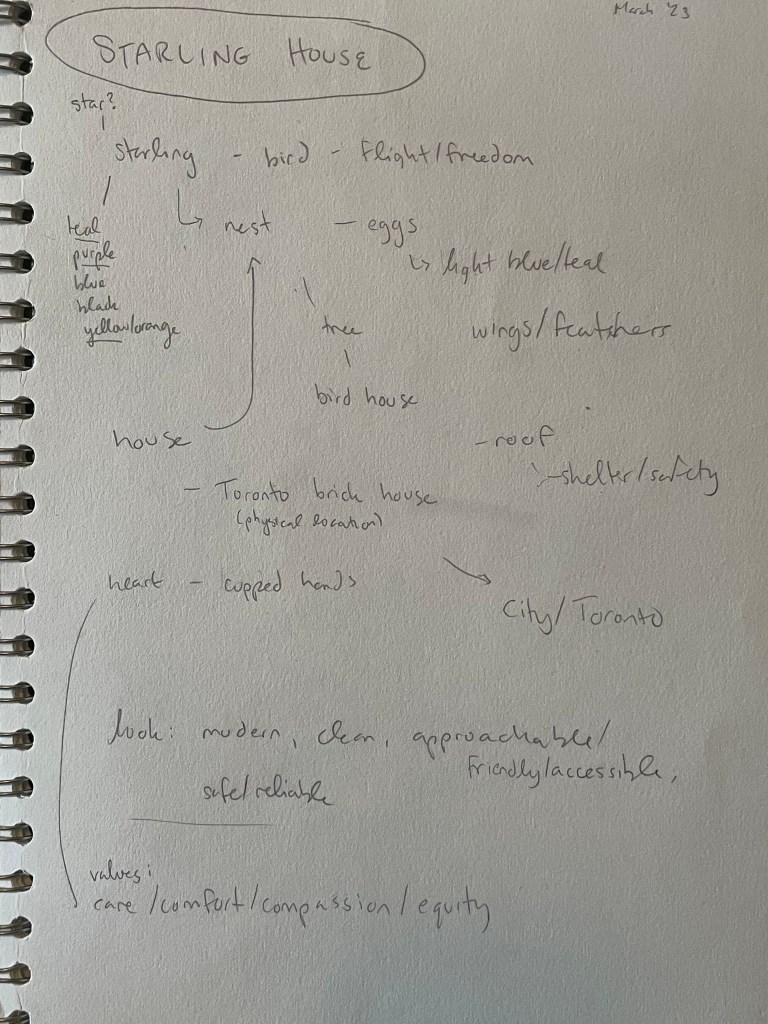 March '23
STARLING HOUSE
star?
starling - bird - flight/freedom
teal
purple
blue
black
yellow/orange
nest - eggs
light blue/teal
tree
wings/featshers
bird house
house
- roof
- shelter/safety
- Toronto brick house
(physical location)
heart - cupped hands
City/Toronto
look: modern, clean, approachable/
friendly/accessible,
safe/reliable
values:
care/comfort/compassion/equity